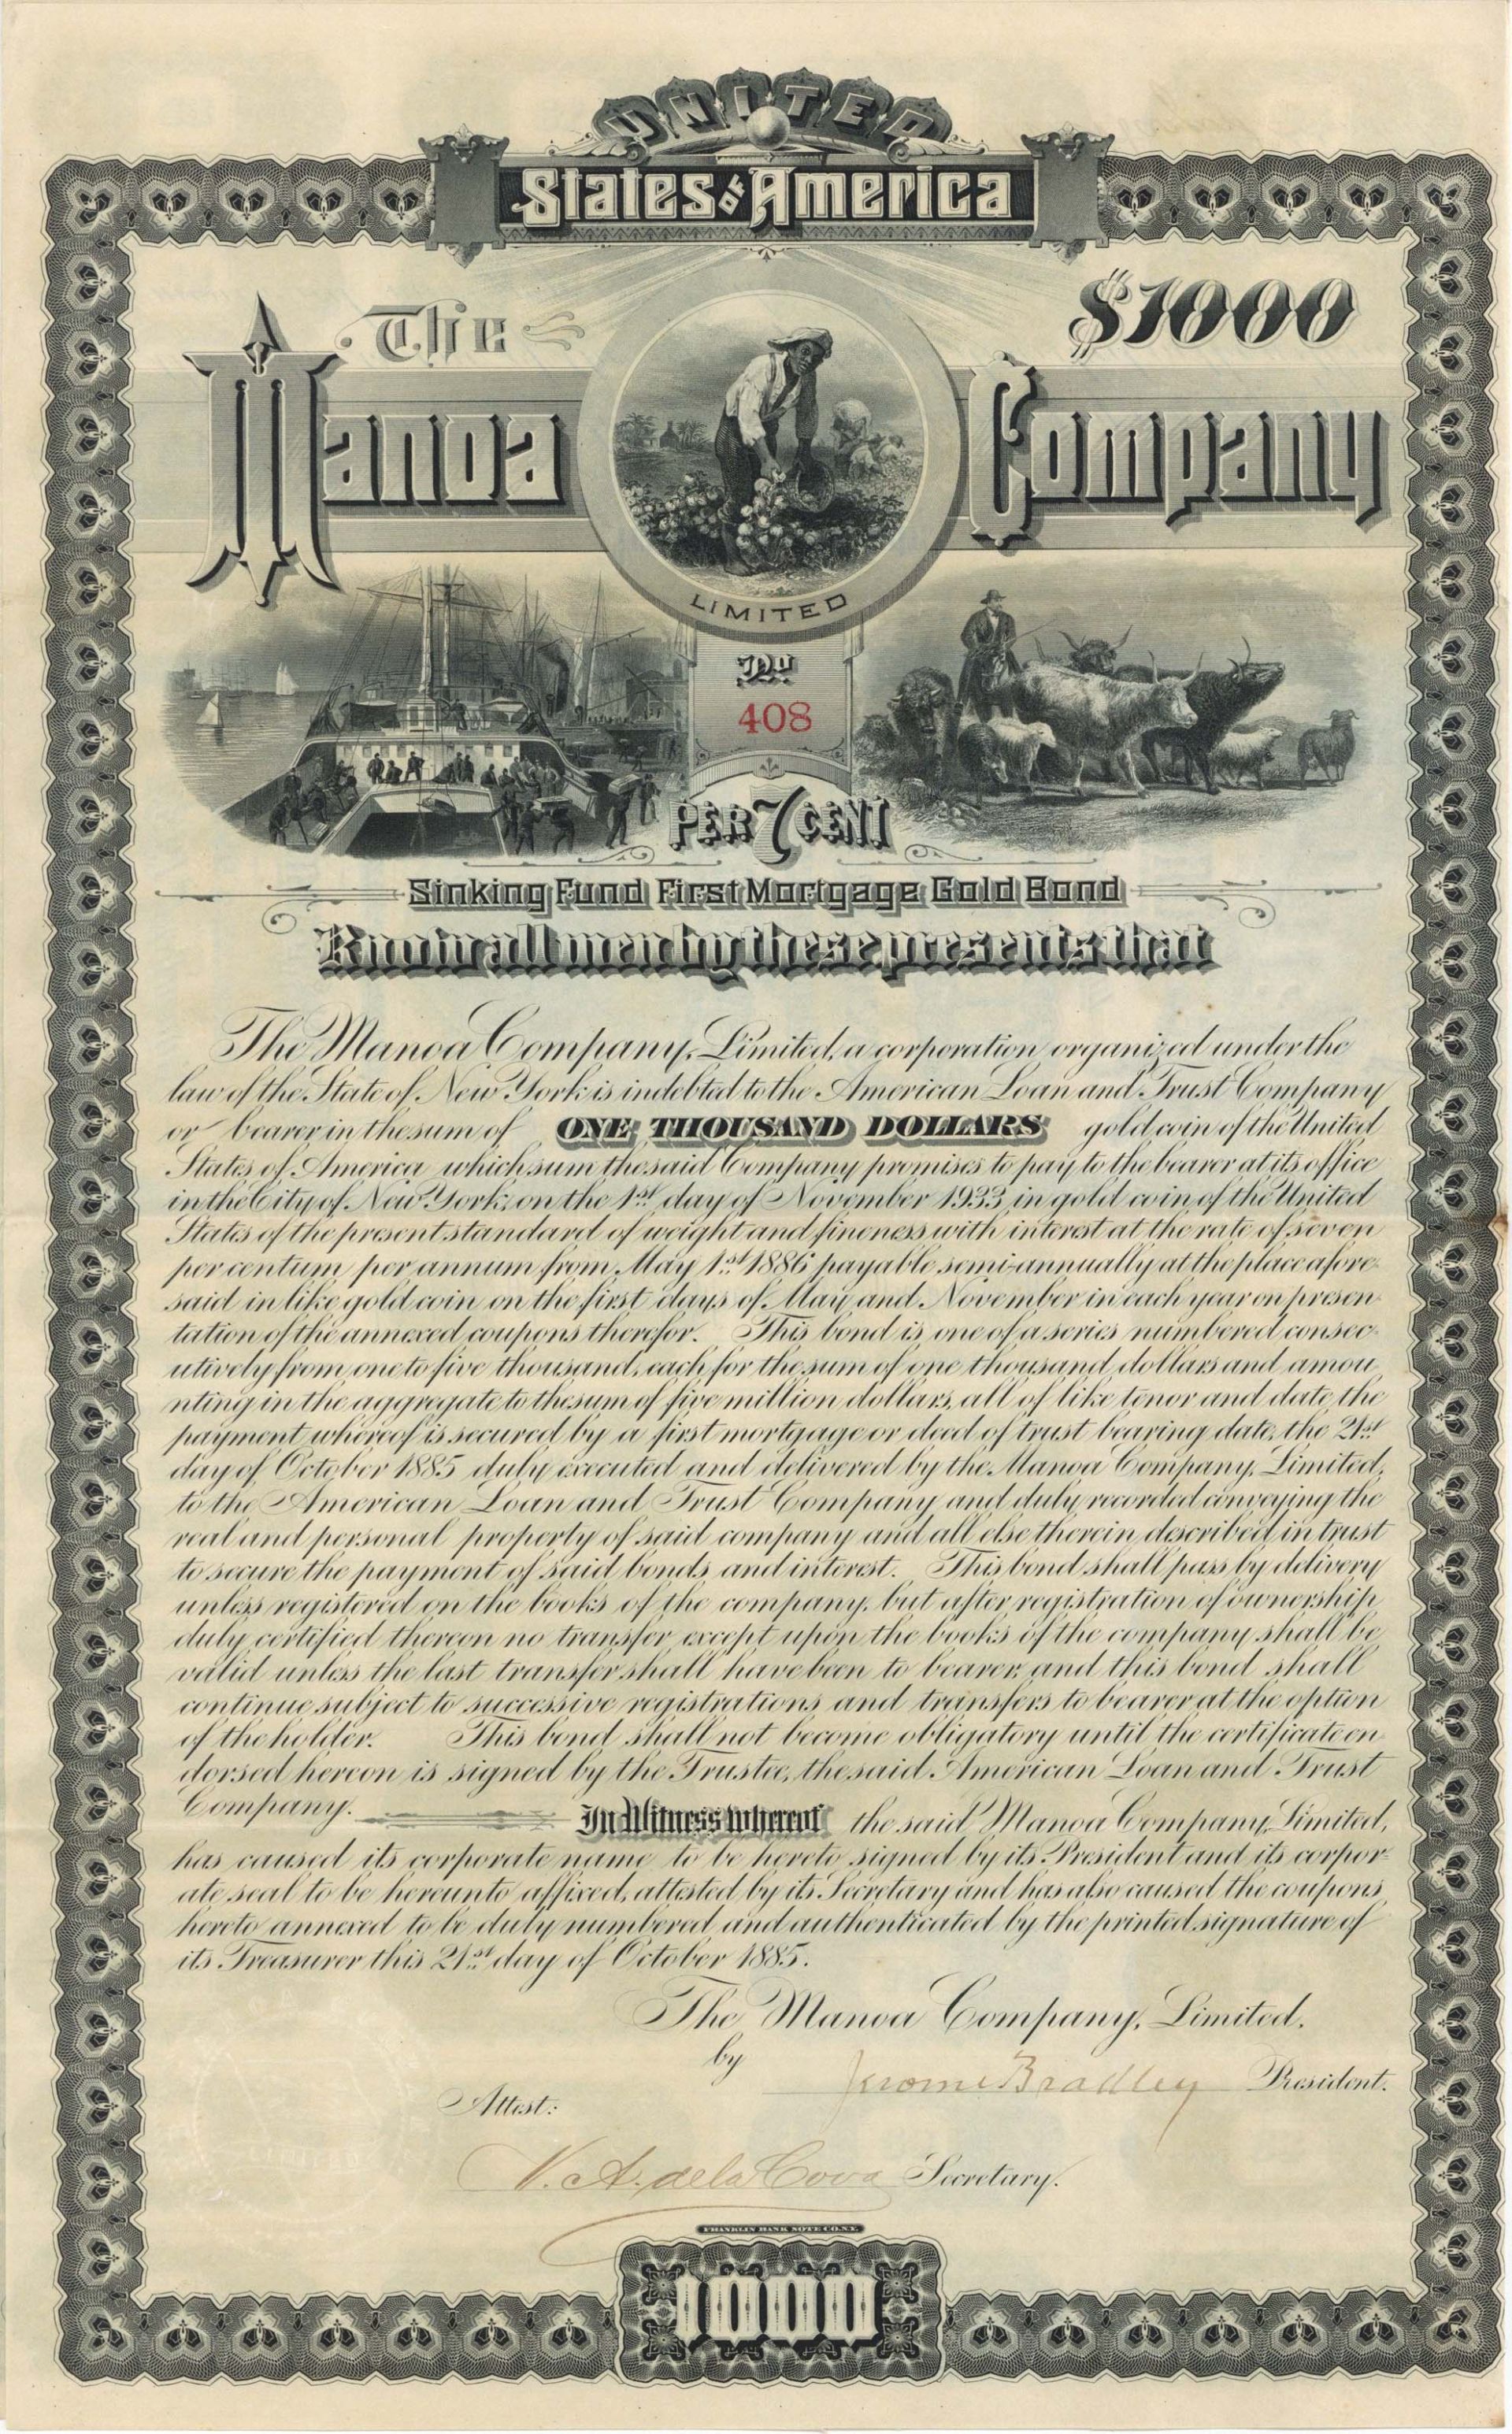 UNITED
States OF America
The
$1000
Manoa
Company
LIMITED
No
408
PER 7 CENT
Sinking Fund First Mortgage Gold Bond
Know all men by these presents that
The Manoa Company, Limited, a corporation organized under the
law of the State of New York is indebted to the American Loan and Trust Company
or bearer in the sum of ONE THOUSAND DOLLARS gold coin of the United
States of America which sum the said Company promises to pay to the bearer at its office
in the City of New York, on the 1st day of November 1933, in gold coin of the United
States of the present standard of weight and fineness with interest at the rate of seven
per centum per annum from May 1st 1886 payable semi-annually at the place afore-
said in like gold coin on the first days of May and November in each year on presen-
tation of the annexed coupons therefor. This bond is one of a series numbered consec-
utively from one to five thousand, each for the sum of one thousand dollars and amou
nting in the aggregate to the sum of five million dollars, all of like tenor and date, the
payment whereof is secured by a first mortgage or deed of trust bearing date, the 21st
day of October 1885 duly executed and delivered by the Manoa Company, Limited,
to the American Loan and Trust Company and duly recorded conveying the
real and personal property of said company and all else therein described in trust
to secure the payment of said bonds and interest. This bond shall pass by delivery
unless registered on the books of the company, but after registration of ownership
duly certified thereon no transfer except upon the books of the company shall be
valid unless the last transfer shall have been to bearer, and this bond shall
continue subject to successive registrations and transfers to bearer at the option
of the holder. This bond shall not become obligatory until the certificate en
dorsed hereon is signed by the Trustee, the said American Loan and Trust
Company. In Witness whereof the said Manoa Company, Limited,
has caused its corporate name to be hereto signed by its President and its corpor-
ate seal to be hereunto affixed, attested by its Secretary and has also caused the coupons
hereto annexed to be duly numbered and authenticated by the printed signature of
its Treasurer this 21st day of October 1885.
The Manoa Company, Limited.
by Jerome Bradley President.
Attest:
V. A. de la Cova Secretary.
FRANKLIN BANK NOTE CO. N.Y.
1000